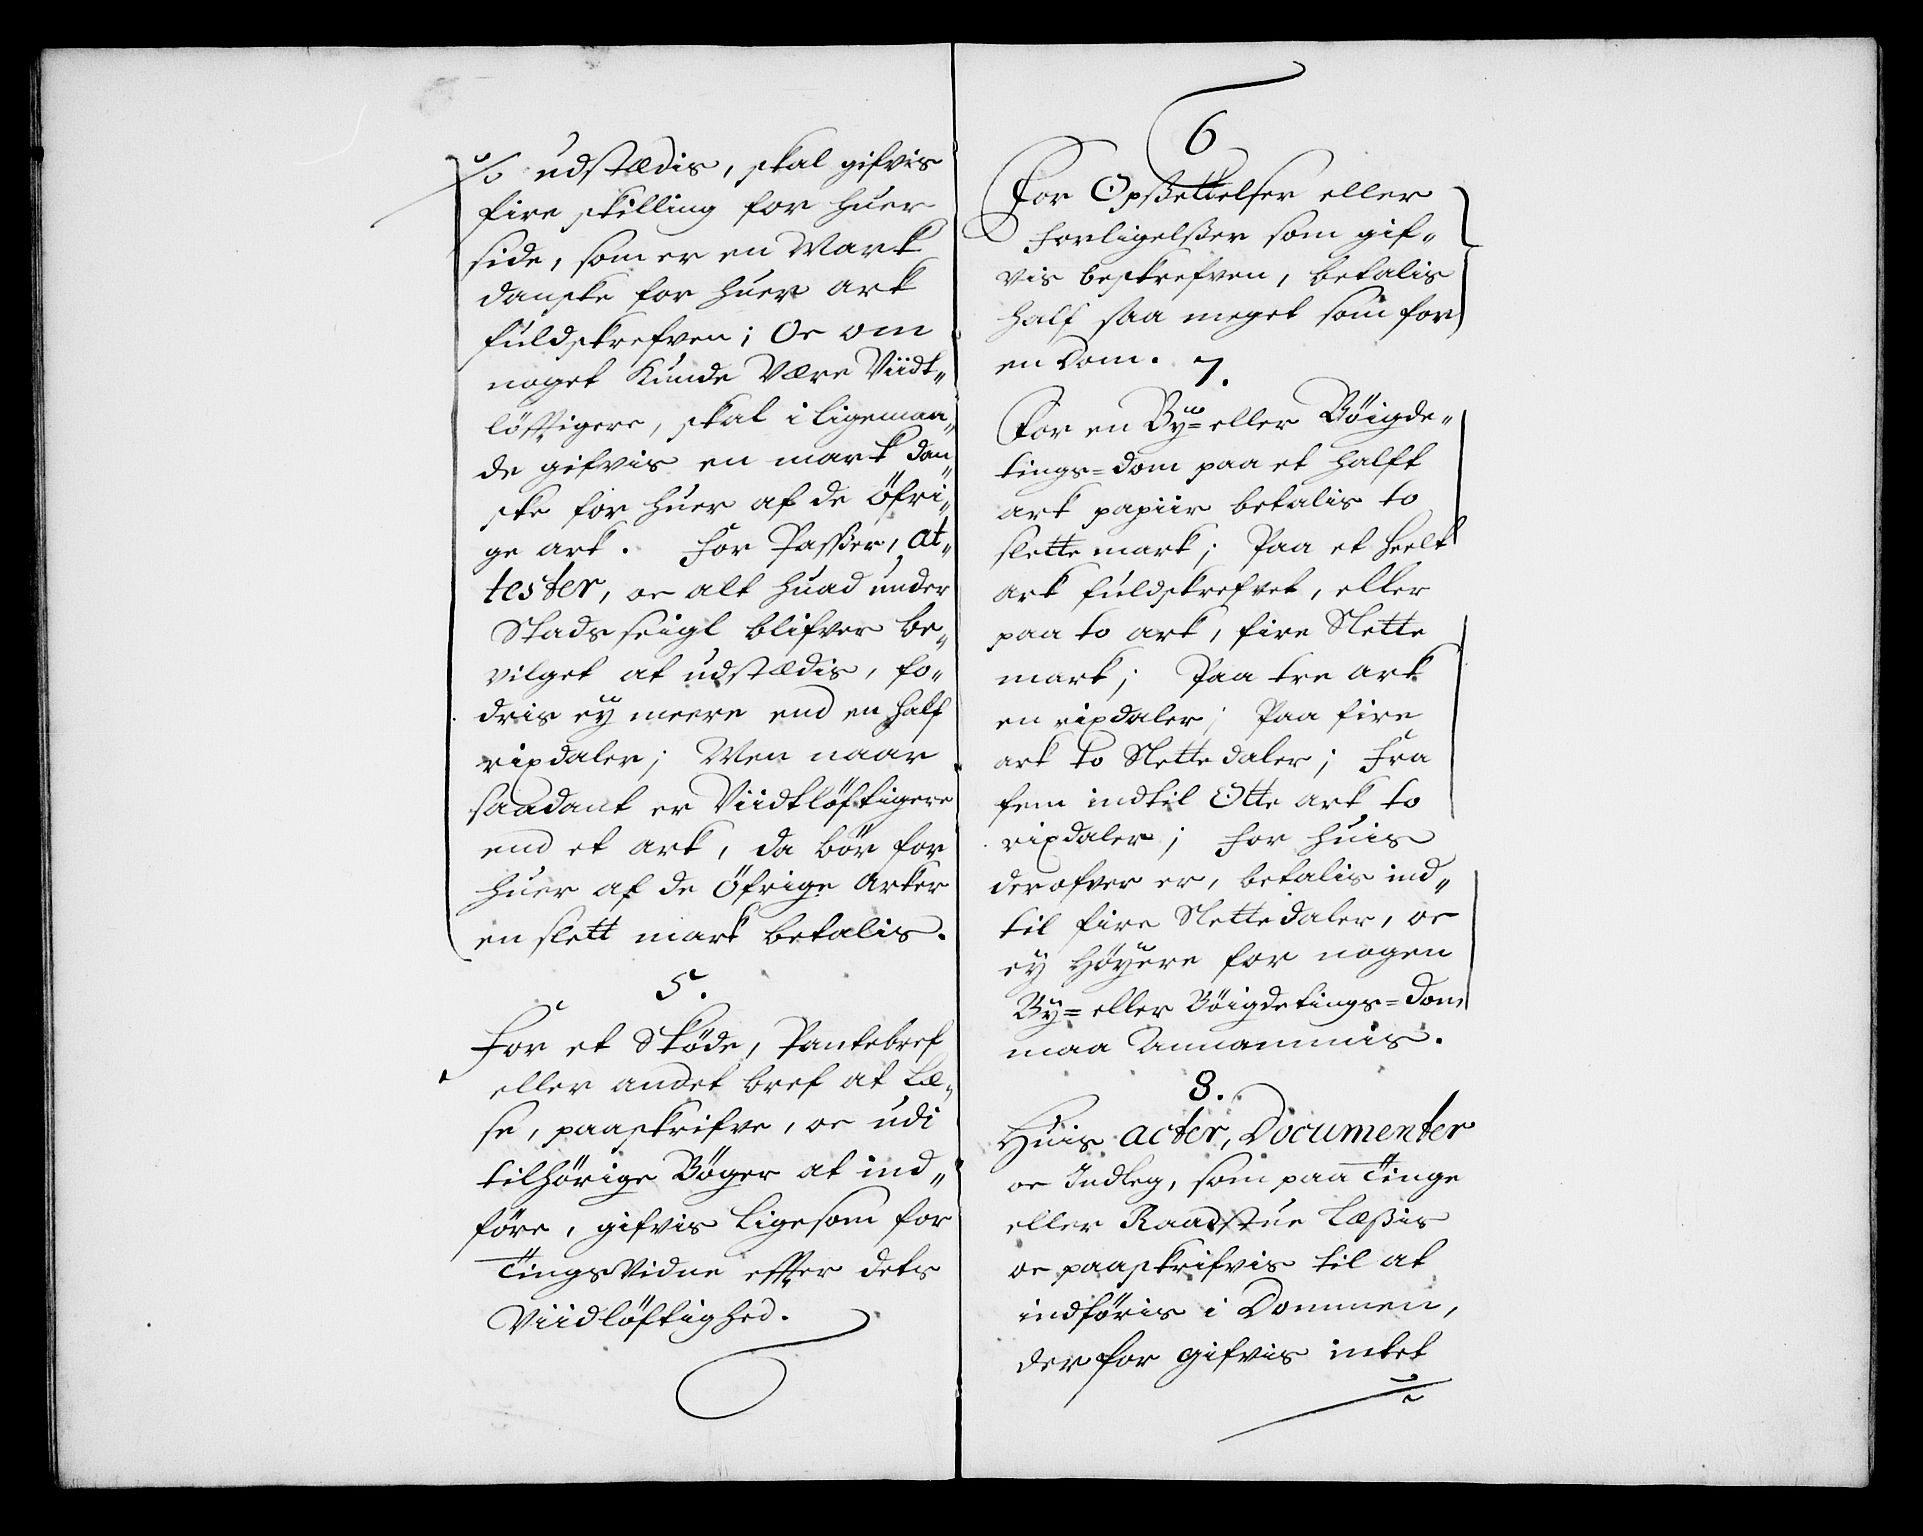 udstædis, skal gifvis
fire skilling for huer
side, som er en Mark
danske for huer ark
fuldskrefven; Oc om
noget Kunde Være Viidt„
löfftigere, skal i ligemaa„
de gifvis en mark dan„
ske for huer af de Öfri„
ge ark. For Passer, At„
tester, oc alt huad under
Stads seigl blifver be„
vilget at udstædis, fo„
dris ey meere end en half
rixdaler; Men naar
saadant er Viidtlöftigere
end et ark, da bör for
huer af de Öfrige Arker
en slett mark betalis.
5.
For et Sköde, Pantebref
eller andet bref at Læ„
se, paaskrifve, oc udi
tilhörige Böger at ind„
före, gifvis Ligesom for
TingsVidne effter dets
Viidlöftighed.
6
For Opßettelser eller
Forligelßer som gif„
vis beskrefven, betalis
half saa meget som for
en Dom. 7.
For en By= eller Böigde„
tings=dom paa et halft
ark papiir betalis to
slette mark; Paa et heelt
ark fuldskrefvet, eller
paa to ark, fire Slette
mark; Paa tre Ark
en rixdaler; Paa fire
ark to Slettedaler; Fra
fem indtil Otte ark to
rixdaler; for huis
derofver er, betalis ind„
til fire Slettedaler, oc
ey höyere for nogen
By= eller Böigdetings=dom
maa Annammis.
8.
Huis acter, Documenter
oc Indleg, som paa Tinge
eller Raadstue Læßis
oc paaskrifvis til at
indföris i Dommen,
derfor gifvis intet